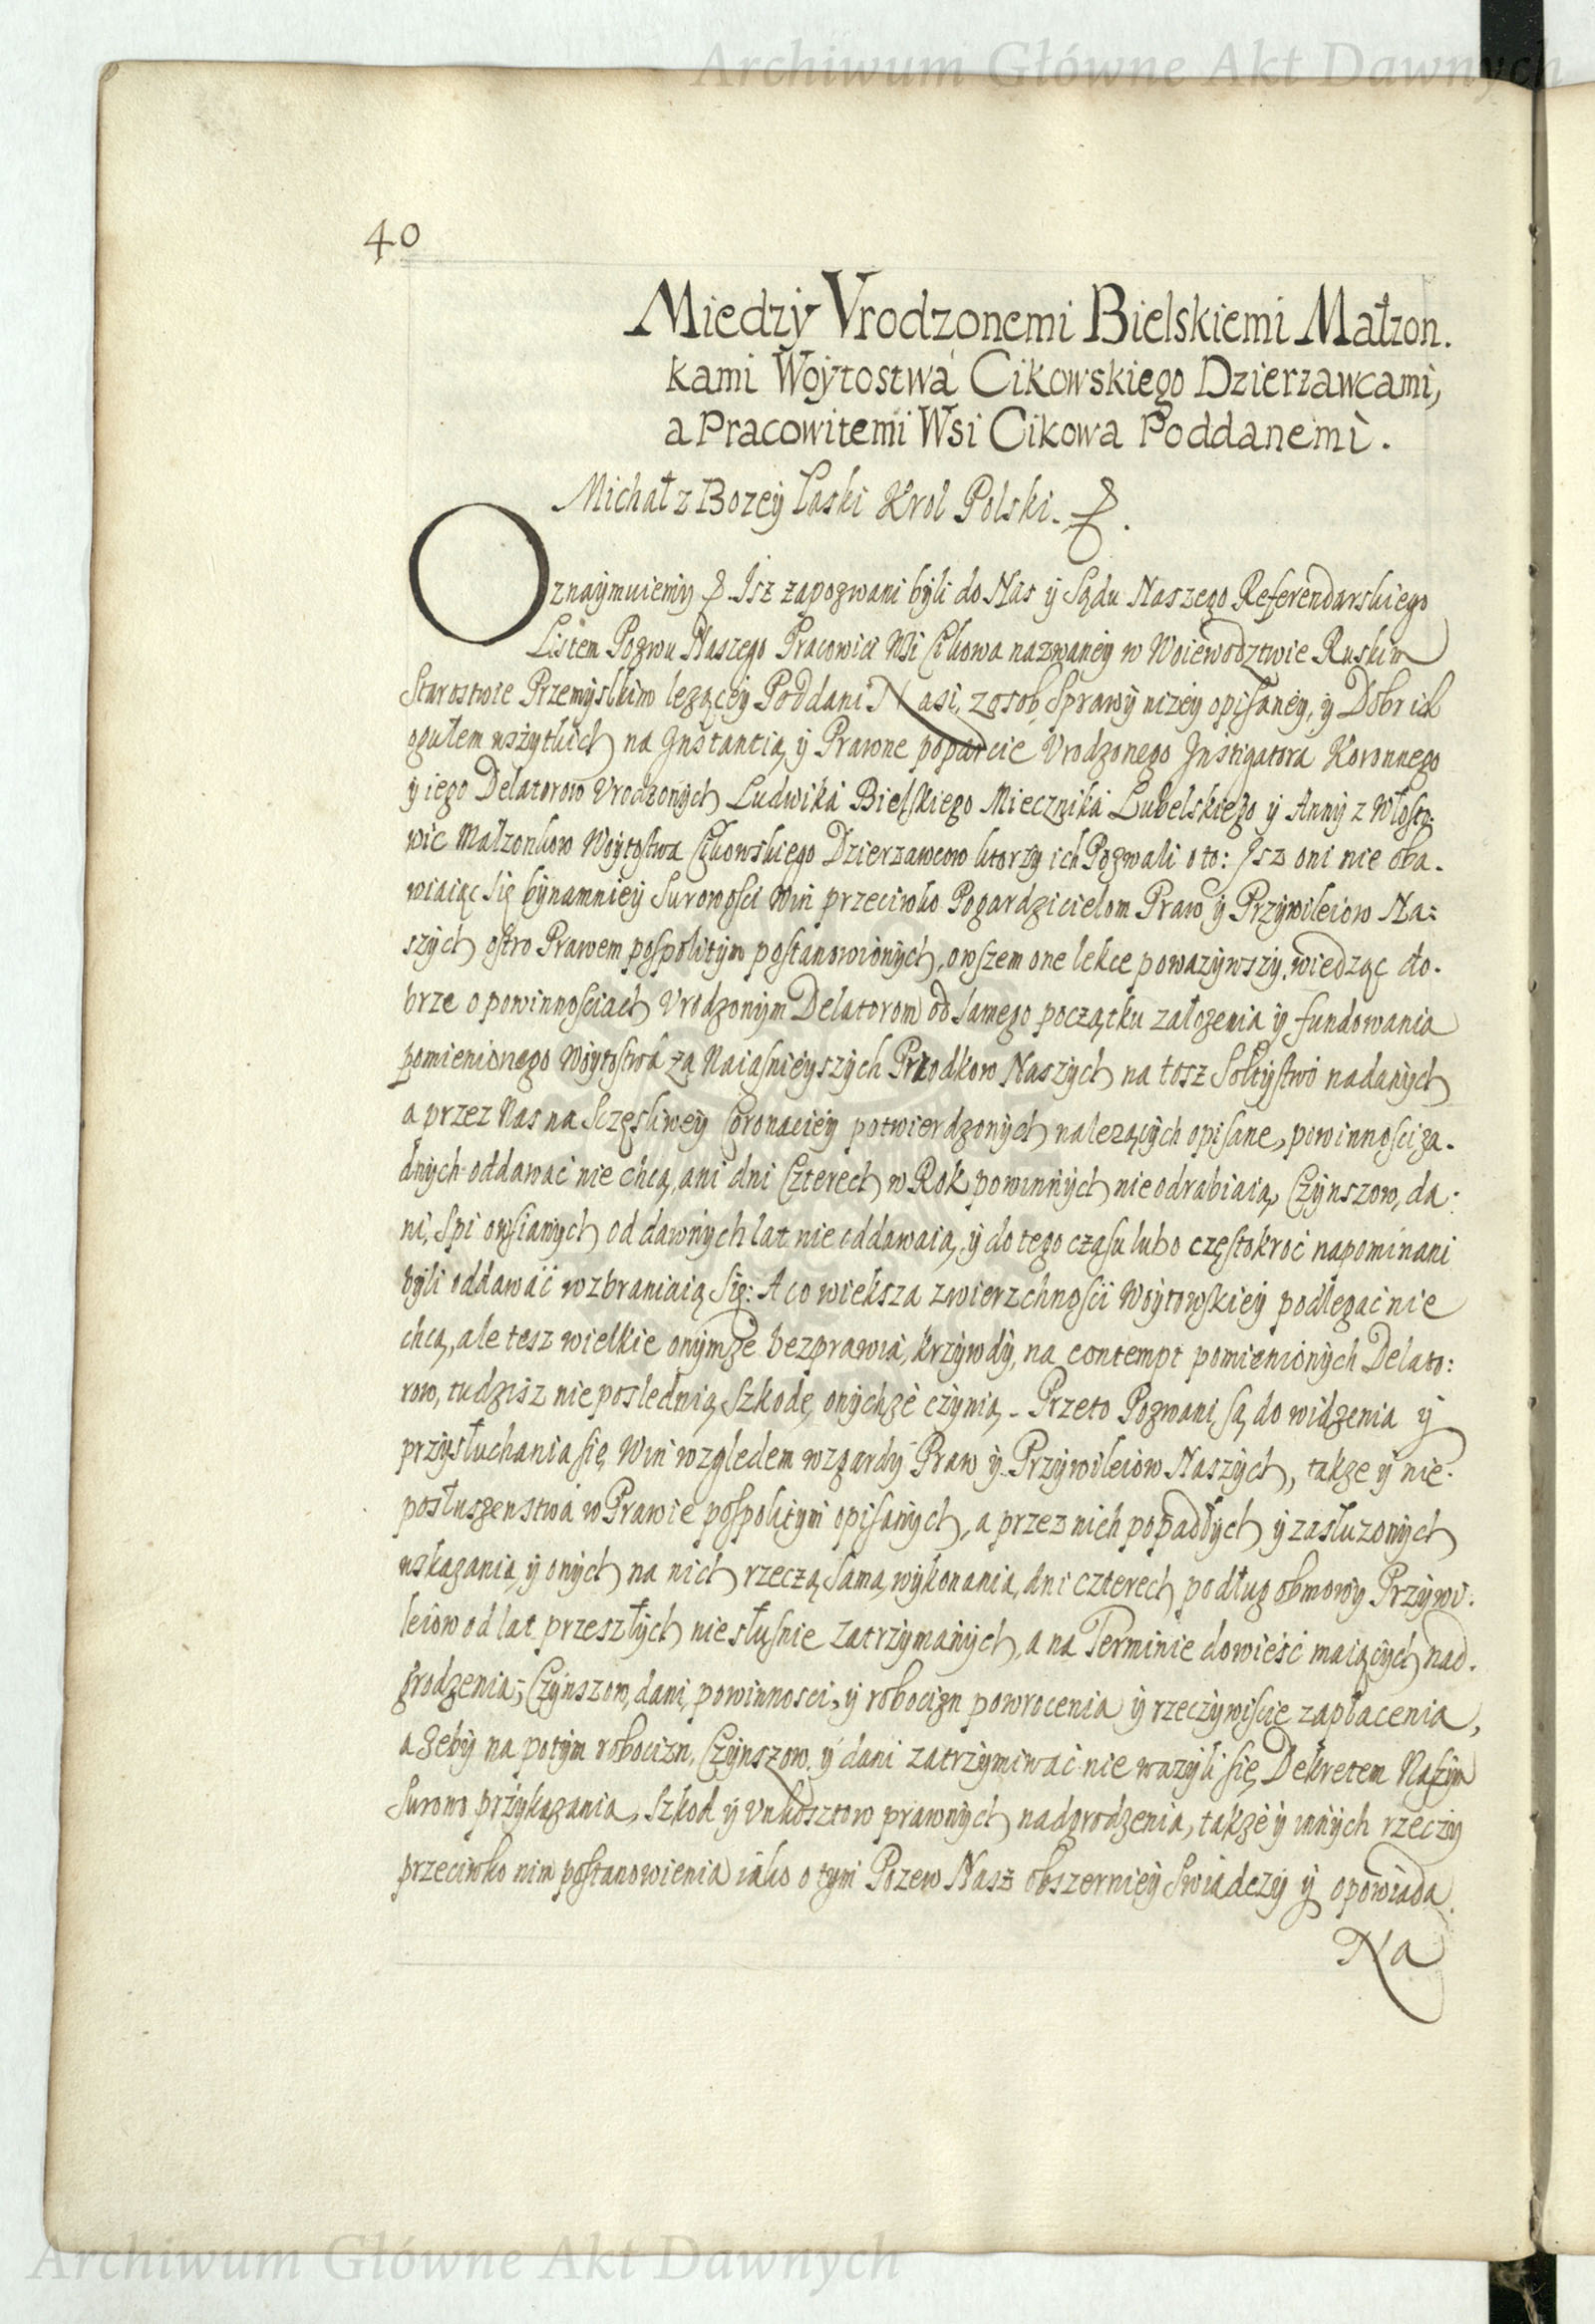 Archiwum Główne Akt Dawnych
40
Miedzÿ Vrodzonemi Bielskiemi Małzon.
kami Woÿtostwá Cikowskiego Dzierzawcami,
a Pracowitemi Wsi Cikowa Poddanemi.
Michał z Bozeÿ Łaski Krol Polski.
Oznaÿmuiemÿ Jsz zapozwani bÿli do Nas ÿ Sądu Naszego Referendarskiego
Listem Pozwu Naszego Pracowici Wsi Cikowa nazwaneÿ w Woiewodztwie Ruskim
Starostwie Przemyslkim lezącеÿ Poddani Nasi, z osob, Sprawÿ nizeÿ opisaneÿ, ÿ Dobr ich
ogułem wszÿtkich na Jnstantią ÿ Prawne poparcie Vrodzonego Jnstigatora Koronnego
ÿ iego Delatorow Vrodzonÿch Ludwiká Bielskiego Miecznika Lubelskiego ÿ Annÿ z Włosto:
wic Małzonkow Woÿtostwa Cikowskiego Dzierzawcow ktorzÿ ich Pozwali oto: Jsz oni nie oba.
wiaiąc się bÿnamnieÿ Surowosci Win przeciwko Pogardzicielom Praw ÿ Przÿwileiow Na:
szÿch ostro Prawem pospolitÿm postanowionÿch, owszem one lekce powazÿwszÿ, wiedząc do.
brze o powinnosciach Vrodzonÿm Delatorom od samego początku załozenia ÿ fundowania
pomienionego Woÿtostwá za Naiasnieÿszÿch Przodkow Naszÿch na tosz Sołtÿstwo nadanÿch
a przez Nas na Sczęsliweÿ Coronacieÿ potwierdzonÿch nalezącÿch opisane, powinnosci za.
dnÿch oddawać nie chcą, ani dni Czterech w Rok powinnÿch nie odrabiaią, Czÿnszow, da:
ni, Spi owsianÿch od dawnÿch lat nie oddawaią, ÿ do tego czasu lubo częstokroć napominani
bÿli oddawać wzbraniaią się: A co wieksza zwierzchnosci Woÿtowskieÿ podlegać nie
chcą, ale tesz wielkie onÿmze bezprawia, krzÿwdÿ, na contempt pomienionÿch Delato:
row, tudzisz nie poslednią Szkodę, onÿchze czÿnią. Przeto Pozwani są do widzenia ÿ
przÿsłuchania się Win względem wzgardÿ Praw ÿ Przÿwileiow Naszÿch, takze ÿ nie.
posłuszenstwá w Prawie pospolitÿm opisanÿch, a przez nich popadłÿch ÿ zasłuzonÿch
wskazania, ÿ onÿch na nich rzeczą Samą, wÿkonania, dni czterech podług obmowÿ Przÿwi:
leiow od lat przeszłÿch niesłusnie zatrzÿmanÿch, a na Terminie dowieść maiącÿch nad.
grodzenia; Czÿnszow, dani, powinnosci, ÿ robocizn powrocenia ÿ rzeczÿwiscie zapłacenia,
a zebÿ na potÿm robocizn, Czÿnszow, ÿ dani zatrzÿmiwać nie wazÿli się, Dekretem Naszÿm
Surowo przÿkazania, Szkod ÿ Vnkosztow prawnÿch nadgrodzenia, takze ÿ innÿch rzeczÿ
przeciwko nim postanowienia iako o tÿm Pozew Nasz obszernieÿ Swiadczÿ ÿ opowiada.
Na
Archiwum Główne Akt Dawnych